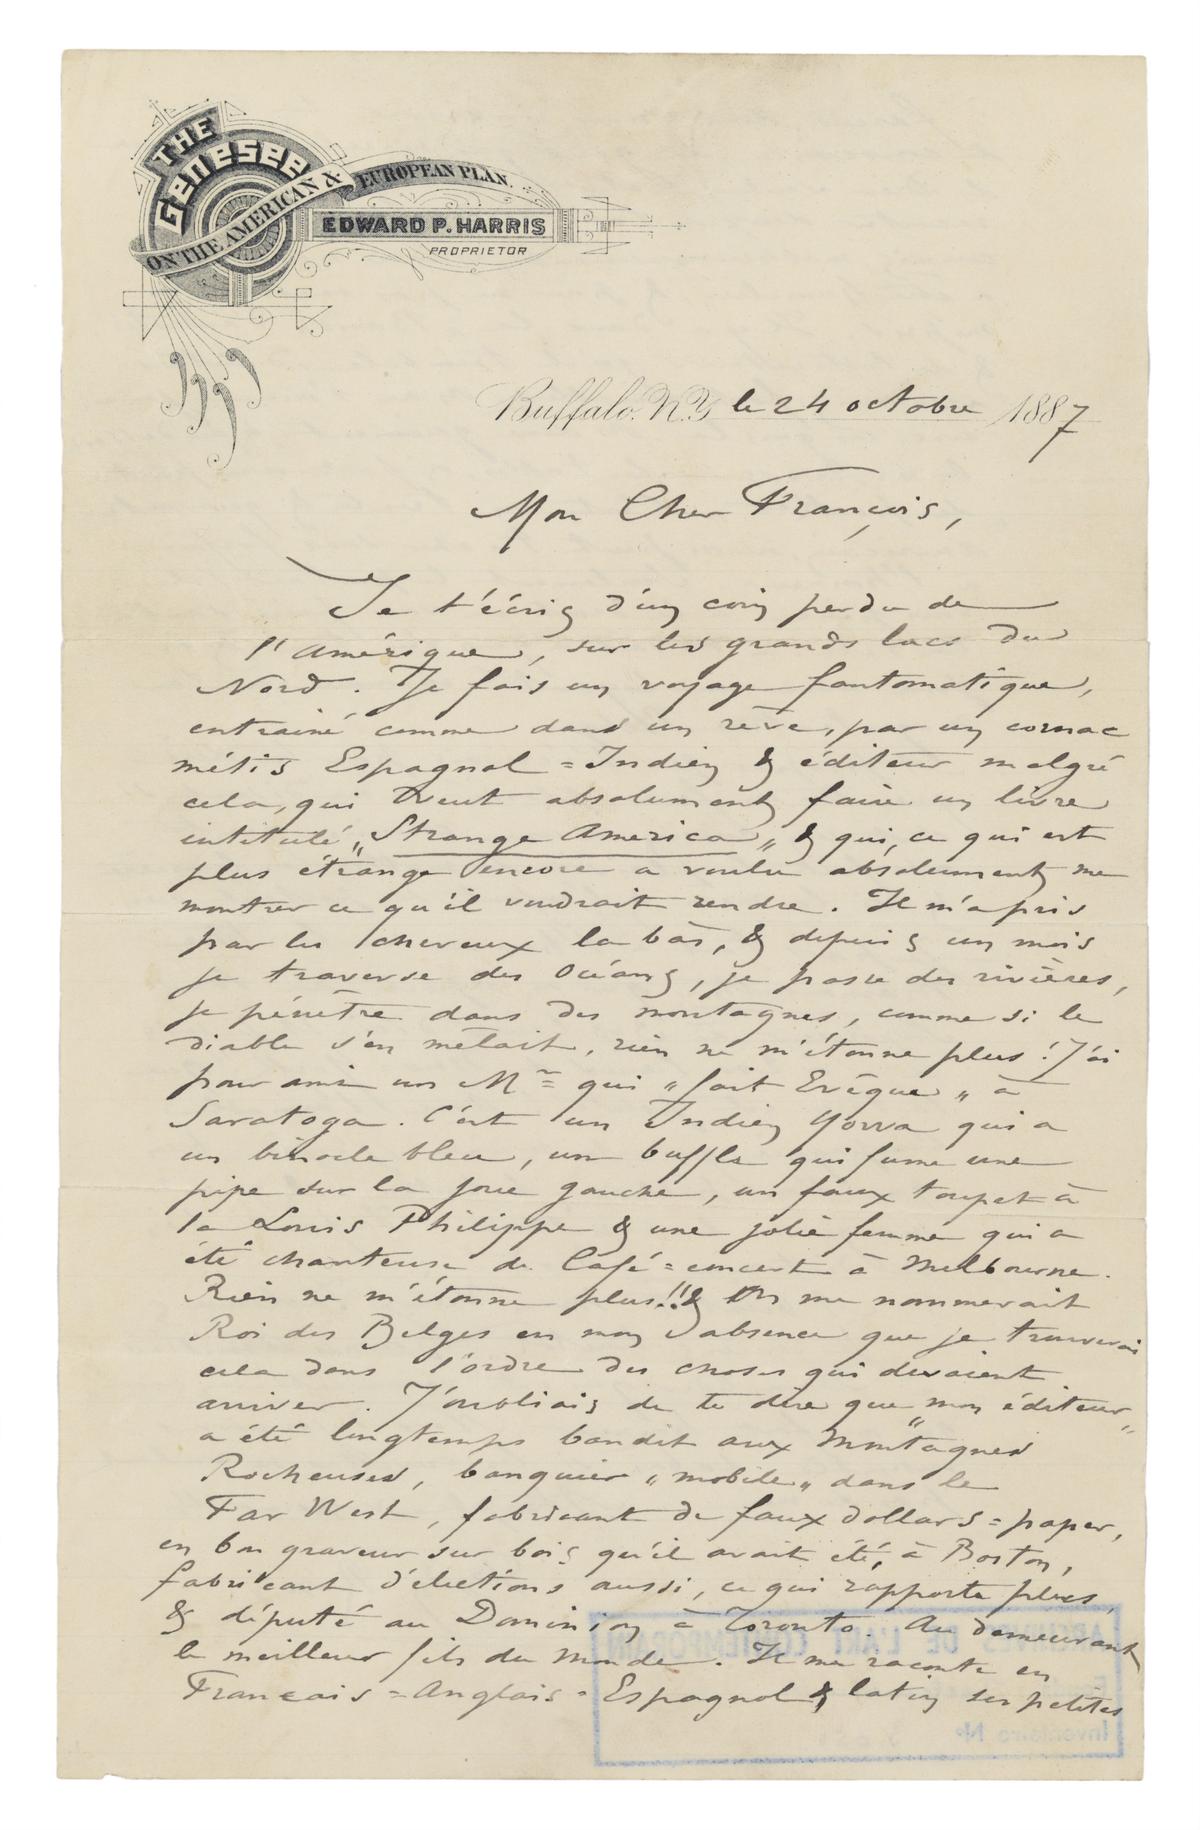 THE
GENESEE
ON THE AMERICAN & EUROPEAN PLAN.
EDWARD P. HARRIS
PROPRIETOR
Buffalo, N.Y. le 24 octobre 1887
Mon Cher François,
Je t'écris d'un coin perdu de
l'Amérique, sur les grands lacs du
Nord. Je fais un voyage fantomatique,
entrainé comme dans un rêve, par un cornac
métis Espagnol=Indien & éditeur malgré
cela, qui veut absolument faire un livre
intitulé „Strange America„ & qui, ce qui est
plus étrange encore a voulu absolument me
montrer ce qu'il voudrait rendre. Il m'a pris
par les cheveux là bàs, & depuis un mois
je traverse des Océans, je passe des rivières,
je pénètre dans des montagnes, comme si le
diable s'en mêlait, rien ne m'étonne plus! J'ai
pour ami un Mr qui „fait Evêque„ à
Saratoga. C'est un Indien Yowa qui a
un binocle bleu, un buffle qui fume une
pipe sur la joue gauche, un faux toupet à
la Louis Philippe & une jolie femme qui a
été chanteuse de Café=concert à Melbourne.
Rien ne m'étonne plus!! & On me nommerait
Roi des Belges en mon absence que je trouverais
cela dans l'ordre des choses qui devaient
arriver. J'oubliais de te dire que „mon éditeur„
a été longtemps bandit aux Montagnes
Rocheuses, banquier „mobile„ dans le
Far West, fabricant de faux dollars=paper,
en bon graveur sur bois qu'il avait été, à Boston,
fabricant d'élections aussi, ce qui rapporte plus,
& député au Dominion à Toronto. Au demeurant
le meilleur fils du monde. Il me raconte en
Français=Anglais=Espagnol & latin ses petites
ARCHIVES DE L'ART CONTEMPORAIN
Inventaire No